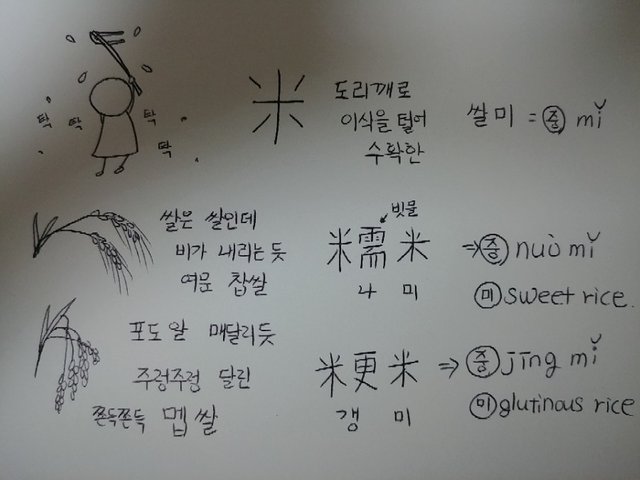 탁 탁 탁
탁
米
도리깨로
이삭을 털어
수확한
쌀미 = 中 mǐ
쌀은 쌀인데
비가 내리는 듯
여문 찹쌀
빗물
米需 米
나 미
⇒ 중 nuò mǐ
미 sweet rice.
포도알 매달리듯
주렁주렁 달린
쫀득쫀득 멥쌀
米更 米
갱 미
⇒ 중 jīng mǐ
미 glutinous rice